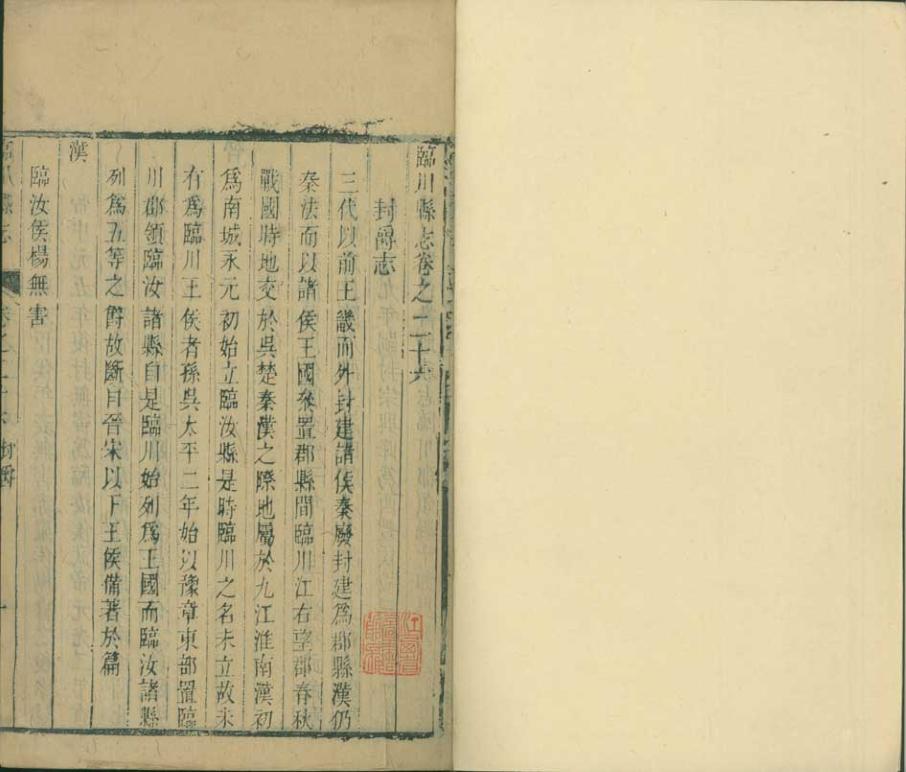 臨川縣志卷之二十六
封爵志
三代以前王畿而外封建諸侯秦廢封建為郡縣漢仍
秦法而以諸侯王國叅置郡縣間臨川江右望郡春秋
戰國時地交於吳楚秦漢之際地屬於九江淮南漢初
爲南城永元初始立臨汝縣是時臨川之名未立故未
有爲臨川王侯者孫吳太平二年始以豫章東部置臨
川郡領臨汝諸縣自是臨川始列爲王國而臨汝諸縣
列爲五等之爵故斷自晉宋以下王侯備著於篇
漢
臨汝侯楊無害
臨川縣志 卷之二十六 封爵 一